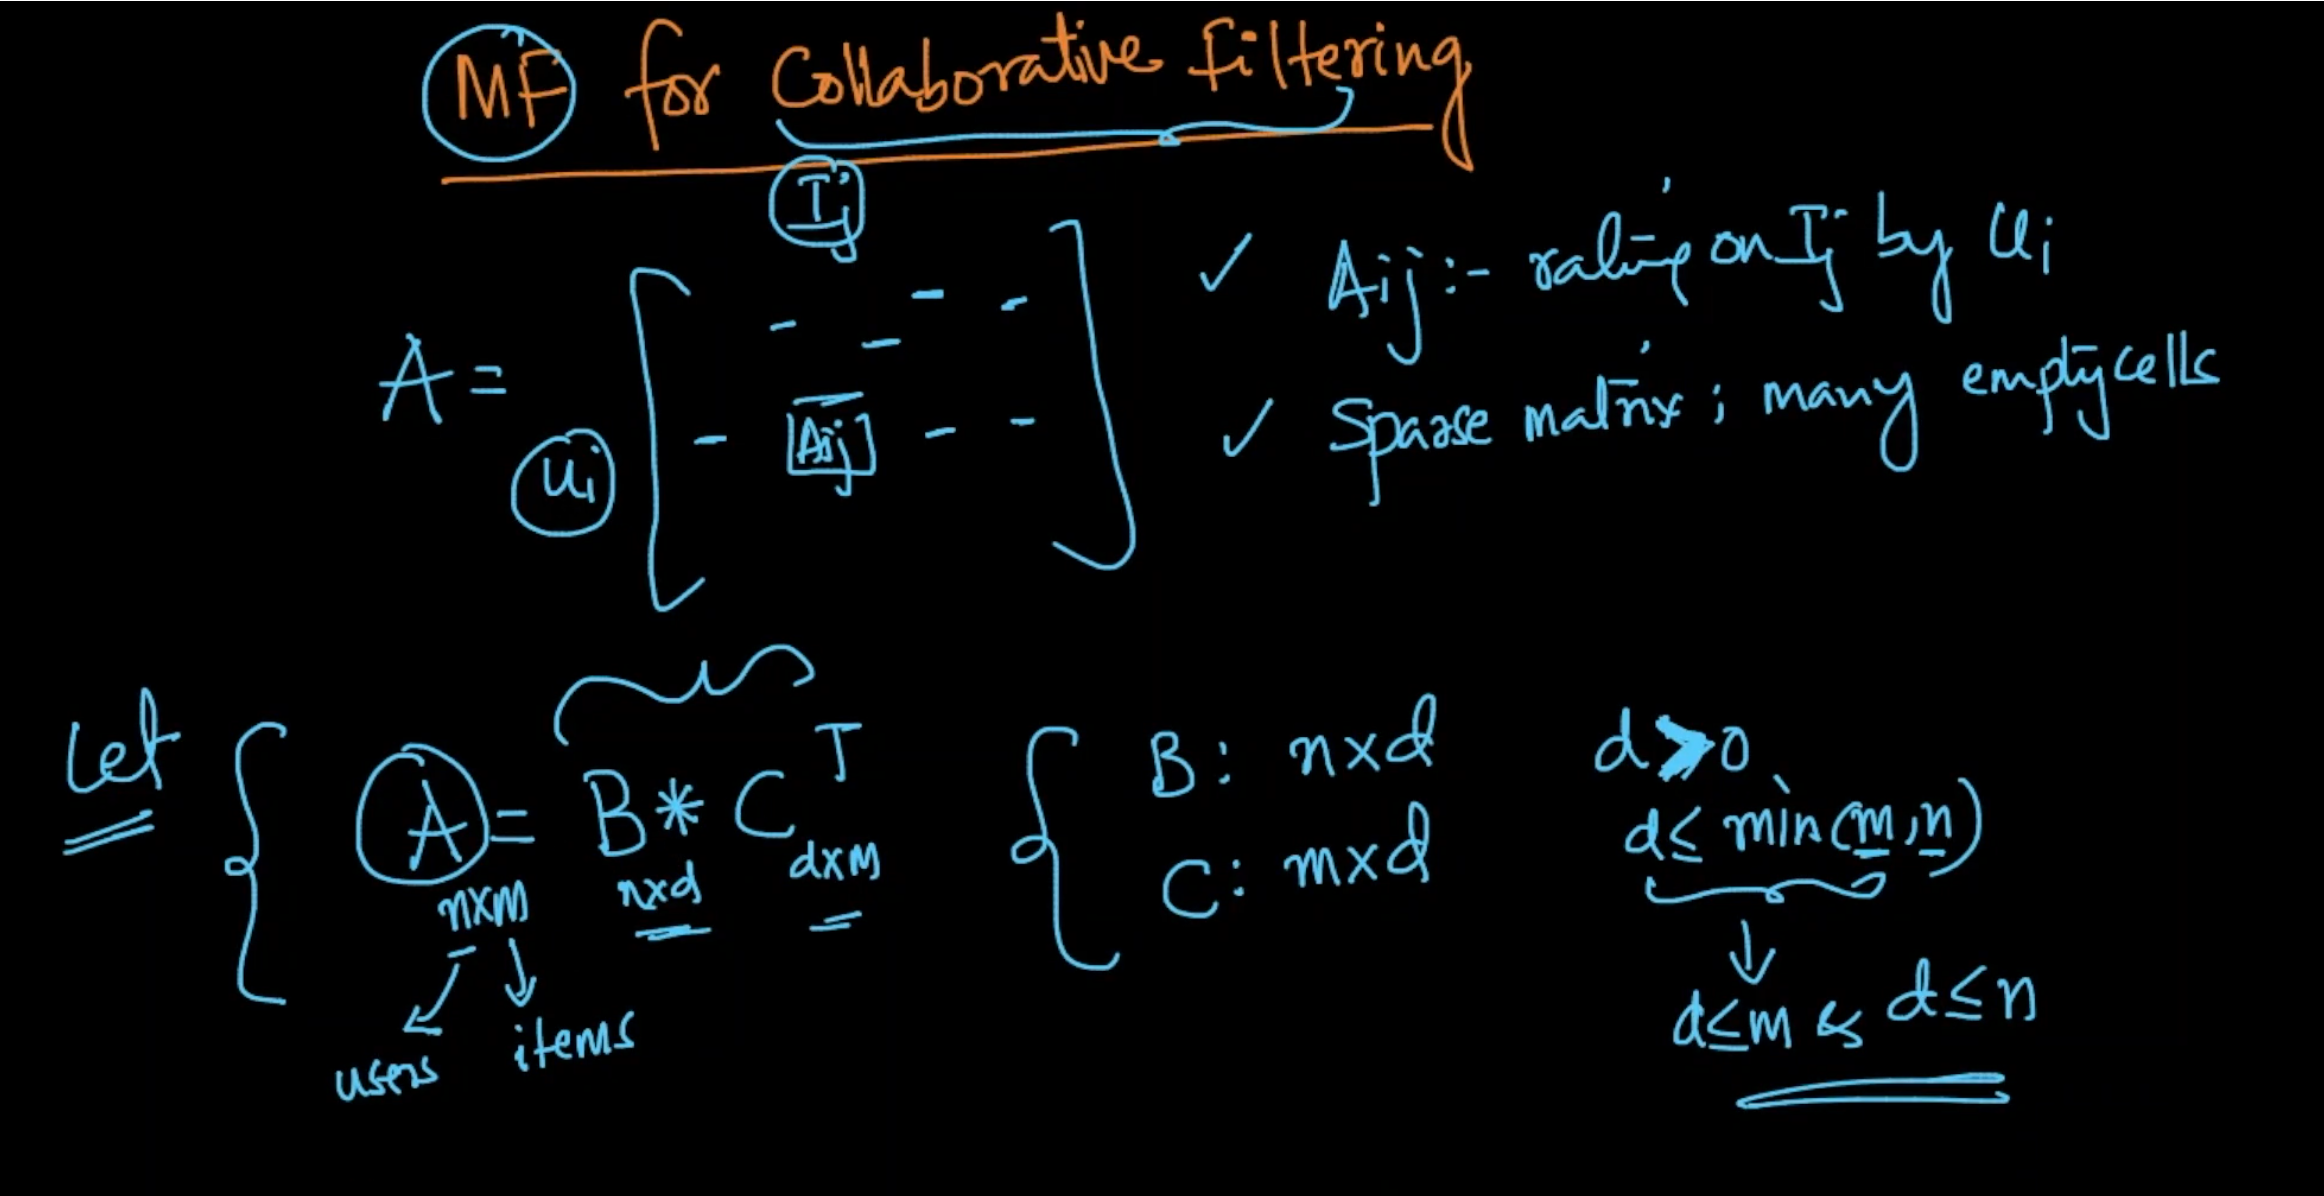 MF for Collaborative Filtering
Ij
Aij :- rating on Ij by Ui
A =
Ui
Aij
Sparse matrix ; many empty cells
Let
A = B * C^T
n×m
n×d
d×m
users
items
B : n×d
C : m×d
d > 0
d ≤ min(m,n)
d ≤ m & d ≤ n